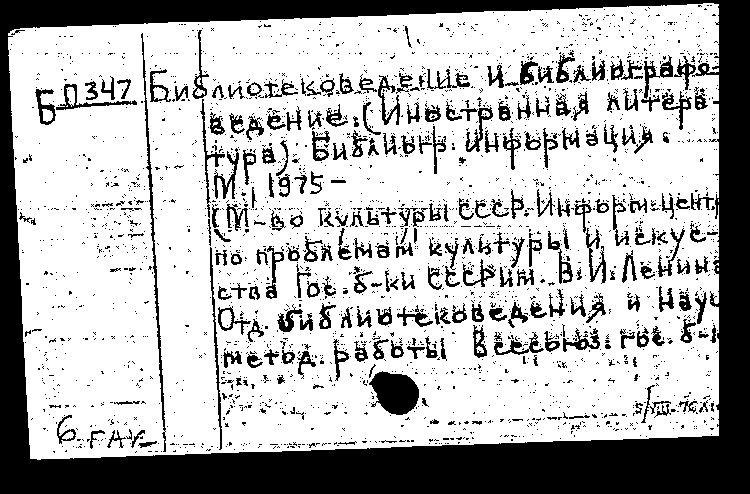 Б П347 Библиотековедение и библиографо-
ведение. (Иностранная литера-
тура). Библиогр. информация.
М., 1975 –
(М-во культуры СССР. Информ. центр
по проблемам культуры и искус-
ства Гос. б-ки СССР им. В.И. Ленина
Отд. библиотековедения и Науч
метод. работы Всесоюз. гос. б-
6